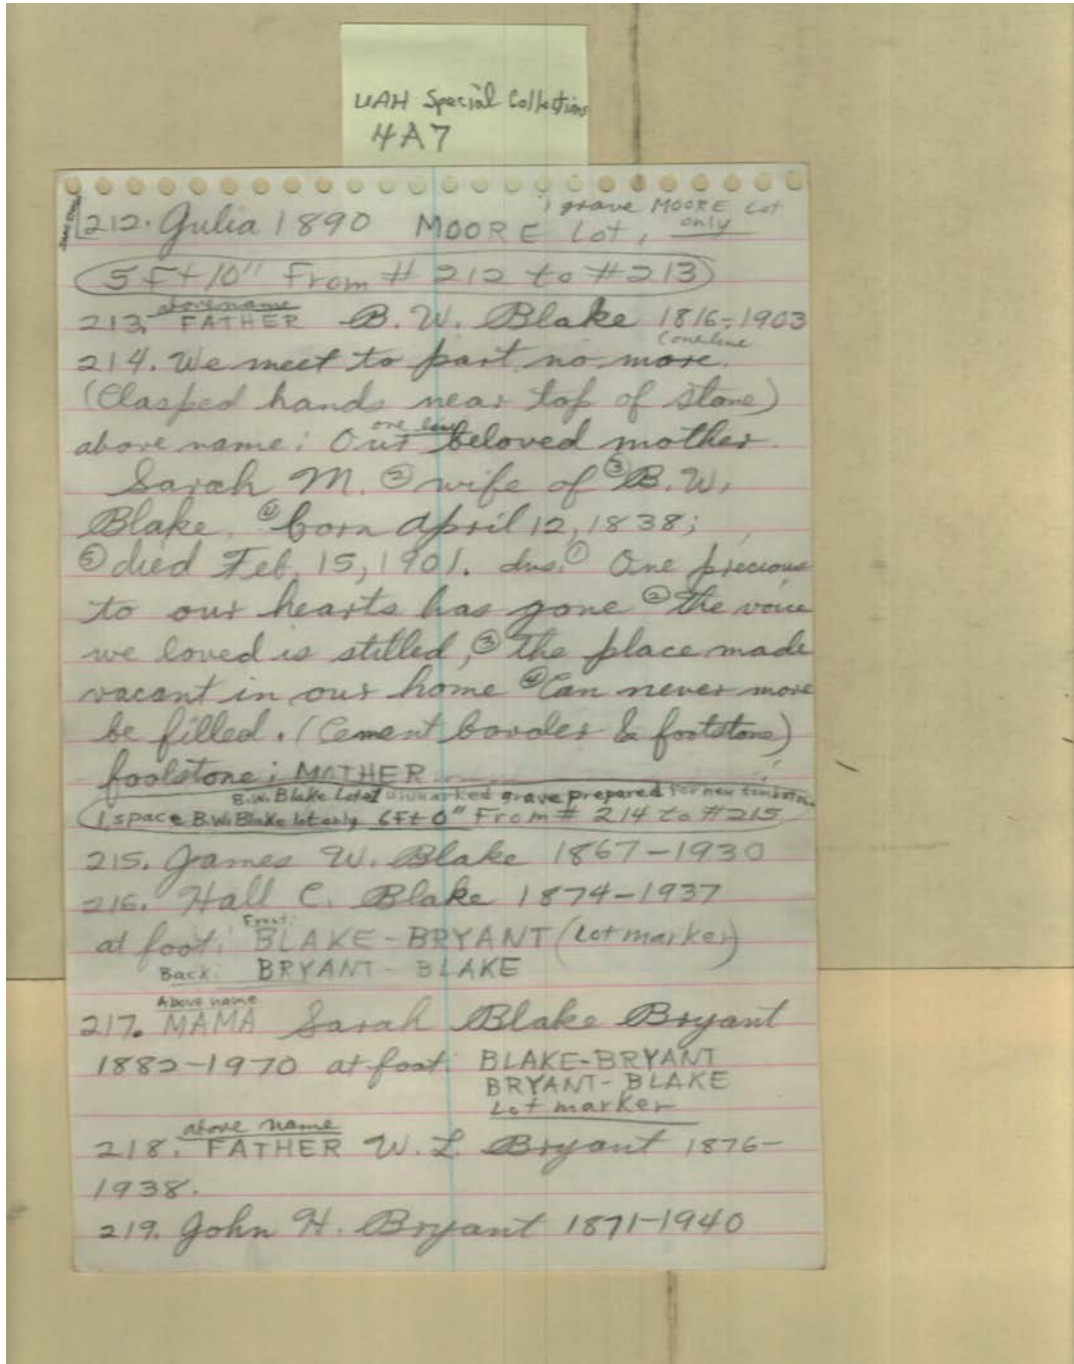 UAH Special Collections
4A7
1 grave MOORE Lot
only
212. Julia 1890 MOORE Lot,
5 Ft 10" From # 212 to # 213
above name
213. FATHER B. W. Blake 1816-1903
(one line
214. We meet to part no more.
(Clasped hands near top of stone)
one line
above name: Our beloved mother
Sarah M. ② wife of ③ B. W.
Blake. ④ born April 12, 1838;
⑤ died Feb. 15, 1901. Ins. ① One precious
to our hearts has gone ② The voice
we loved is stilled, ③ The place made
vacant in our home ④ Can never more
be filled. (Cement border & footstone)
footstone: MOTHER
B.W. Blake Lot 1 unmarked grave prepared for new
1 space B.W. Blake lot only 6 Ft 0" From # 214 to # 215
215. James W. Blake 1867-1930
216. Hall C. Blake 1874-1937
Front:
at foot: BLAKE-BRYANT (Lot marker)
Back: BRYANT-BLAKE
Above name
217. MAMA Sarah Blake Bryant
1882-1970 at foot: BLAKE-BRYANT
BRYANT-BLAKE
Lot marker
above name
218. FATHER W. L. Bryant 1876-
1938.
219. John H. Bryant 1871-1940